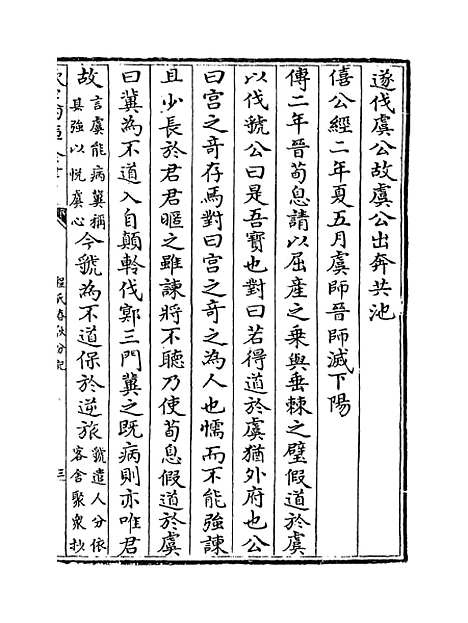 遂伐虞公故虞公出奔共池
僖公經二年夏五月虞師晉師滅下陽
傳二年晉荀息請以屈産之乘與垂棘之璧假道於虞
以伐虢公曰是吾寶也對曰若得道於虞猶外府也公
曰宫之奇存焉對曰宫之奇之為人也懦而不能強諫
且少長於君君暱之雖諫將不聽乃使荀息假道於虞
曰冀為不道入自顛軨伐鄍三門冀之既病則亦唯君
故言虞能病冀稱其強以悦虞心今虢為不道保於逆旅虢遣人分依客舍聚衆抄
程氏春秋分記
三